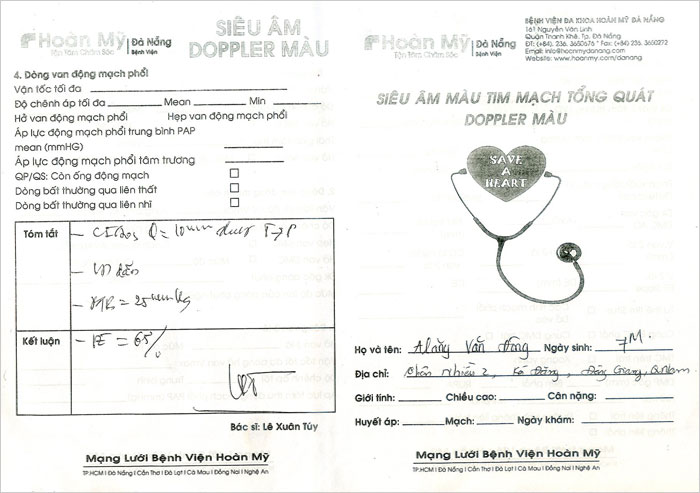 Hoàn Mỹ
Tận Tâm Chăm Sóc
Đà Nẵng
Bệnh viện
SIÊU ÂM
DOPPLER MÀU
4. Dòng van động mạch phổi
Vận tốc tối đa
Độ chênh áp tối đa Mean Min
Hở van động mạch phổi Hẹp van động mạch phổi
Áp lực động mạch phổi trung bình PAP
mean (mmHG)
Áp lực động mạch phổi tâm trương
QP/QS: Còn ống động mạch
Dòng bất thường qua liên thất
Dòng bất thường qua liên nhĩ
Tóm tắt
- Q = 10mm shunt T→P
- VD dãn
- = 25mmHg
Kết luận
- FE = 65%
Bác sĩ: Lê Xuân Túy
Mạng Lưới Bệnh Viện Hoàn Mỹ
TP.HCM I Đà Nẵng I Cần Thơ I Đà Lạt I Cà Mau I Đồng Nai I Nghệ An
Hoàn Mỹ
Tận Tâm Chăm Sóc
Đà Nẵng
Bệnh viện
BỆNH VIỆN ĐA KHOA HOÀN MỸ ĐÀ NẴNG
161 Nguyễn Văn Linh
Quận Thanh Khê, Tp. Đà Nẵng
ĐT: (+84). 236. 3650676 * Fax: (+84) 236. 3650272
Email: info@hoanmydanang.com
Website: www.hoanmy.com/danang
SIÊU ÂM MÀU TIM MẠCH TỔNG QUÁT
DOPPLER MÀU
SAVE
A
HEART
Họ và tên: Alăng Văn Đông Ngày sinh: 7M.
Địa chỉ: 2, Đông Giang, QNam
Giới tính: Chiều cao: Cân nặng:
Huyết áp: Mạch: Ngày khám:
Mạng Lưới Bệnh Viện Hoàn Mỹ
TP.HCM I Đà Nẵng I Cần Thơ I Đà Lạt I Cà Mau I Đồng Nai I Nghệ An